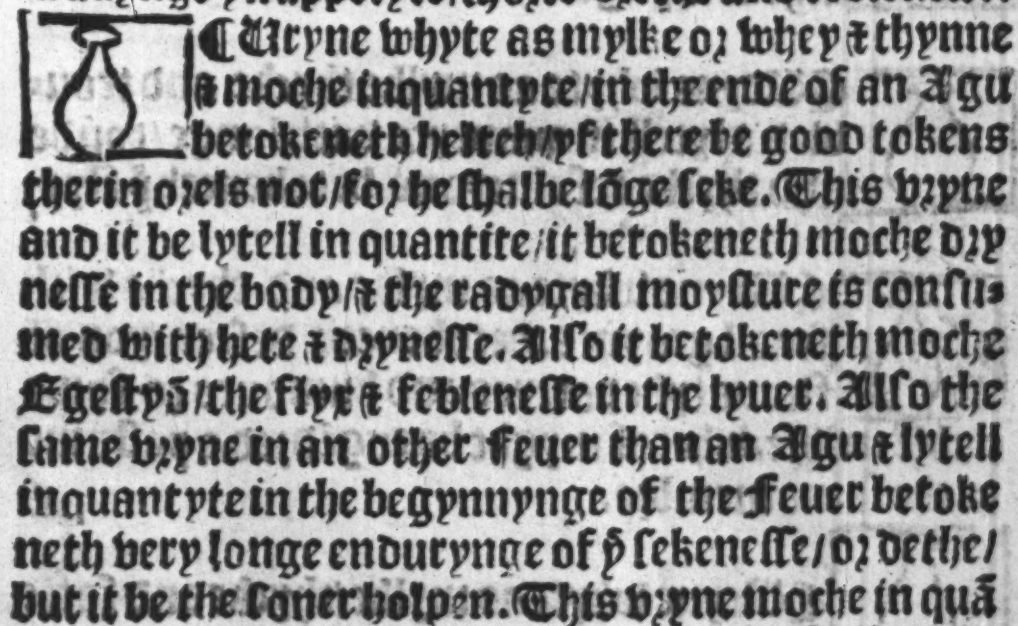 ¶ Uryne whyte as mylke or whey ⁊ thynne
⁊ moche inquantyte/in the ende of an Agu
betokeneth helteh/yf there be good tokens
therin orels not/for he shalbe lõge seke. This vryne
and it be lytell in quantite/it betokeneth moche dry
nesse in the body/⁊ the radygall moysture is consu⸗
med with hete ⁊ drynesse. Also it betokeneth moche
Egestyõ/the flyx ⁊ feblenesse in the lyuer. Also the
same vryne in an other Feuer than an Agu ⁊ lytell
inquantyte in the begynnynge of the Feuer betoke
neth very longe endurynge of yͤ sekenesse/or dethe/
but it be the soner holpen. This vryne moche in quã